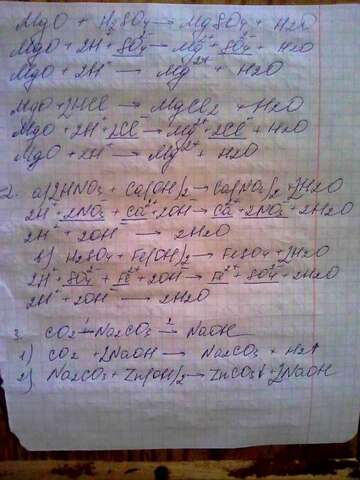 MgO + H₂SO₄ → MgSO₄ + H₂O
MgO + 2H⁺ + SO₄²⁻ → Mg²⁺ + SO₄²⁻ + H₂O
MgO + 2H⁺ → Mg²⁺ + H₂O
MgO + 2HCl → MgCl₂ + H₂O
MgO + 2H⁺ + 2Cl⁻ → Mg²⁺ + 2Cl⁻ + H₂O
MgO + 2H⁺ → Mg²⁺ + H₂O
2. а) 2HNO₃ + Ca(OH)₂ → Ca(NO₃)₂ + 2H₂O
2H⁺ + 2NO₃⁻ + Ca²⁺ + 2OH⁻ → Ca²⁺ + 2NO₃⁻ + 2H₂O
2H⁺ + 2OH⁻ → 2H₂O
в) H₂SO₄ + Fe(OH)₂ → FeSO₄ + 2H₂O
2H⁺ + SO₄²⁻ + Fe²⁺ + 2OH⁻ → Fe²⁺ + SO₄²⁻ + 2H₂O
2H⁺ + 2OH⁻ → 2H₂O
3. CO₂ →¹ Na₂CO₃ →² NaOH
1) CO₂ + 2NaOH → Na₂CO₃ + H₂↑
2) Na₂CO₃ + Zn(OH)₂ → ZnCO₃↓ + 2NaOH